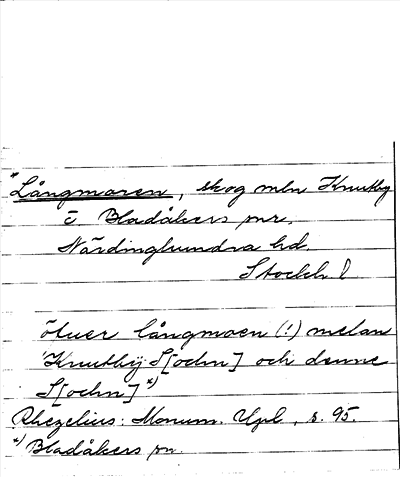 *Långmoren, skog mln Knutby
o Bladåkers snr,
Närdinghundra hd.
Stockh l
öfuer långmoen (!) melan
Knutbÿ S[ochn] och denne
S[ochn] *)
Rhezelius: Monum. Upl., s. 95.
*) Bladåkers sn.